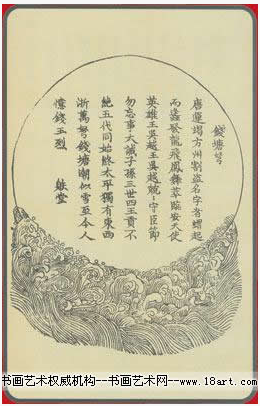 錢塘弩
唐運謁方州割盗名字者蝟起
而蠭發龍飛鳳舞萃臨安天使
英雄王吳越王吳越兢兢守臣節
勿忘事大誡子孫三世四王貢不
絶五代同始終太平獨有東西
浙萬弩錢塘潮似雪至今人
憶錢王烈
书画艺术权威机构--书画艺术网--www.18art.com